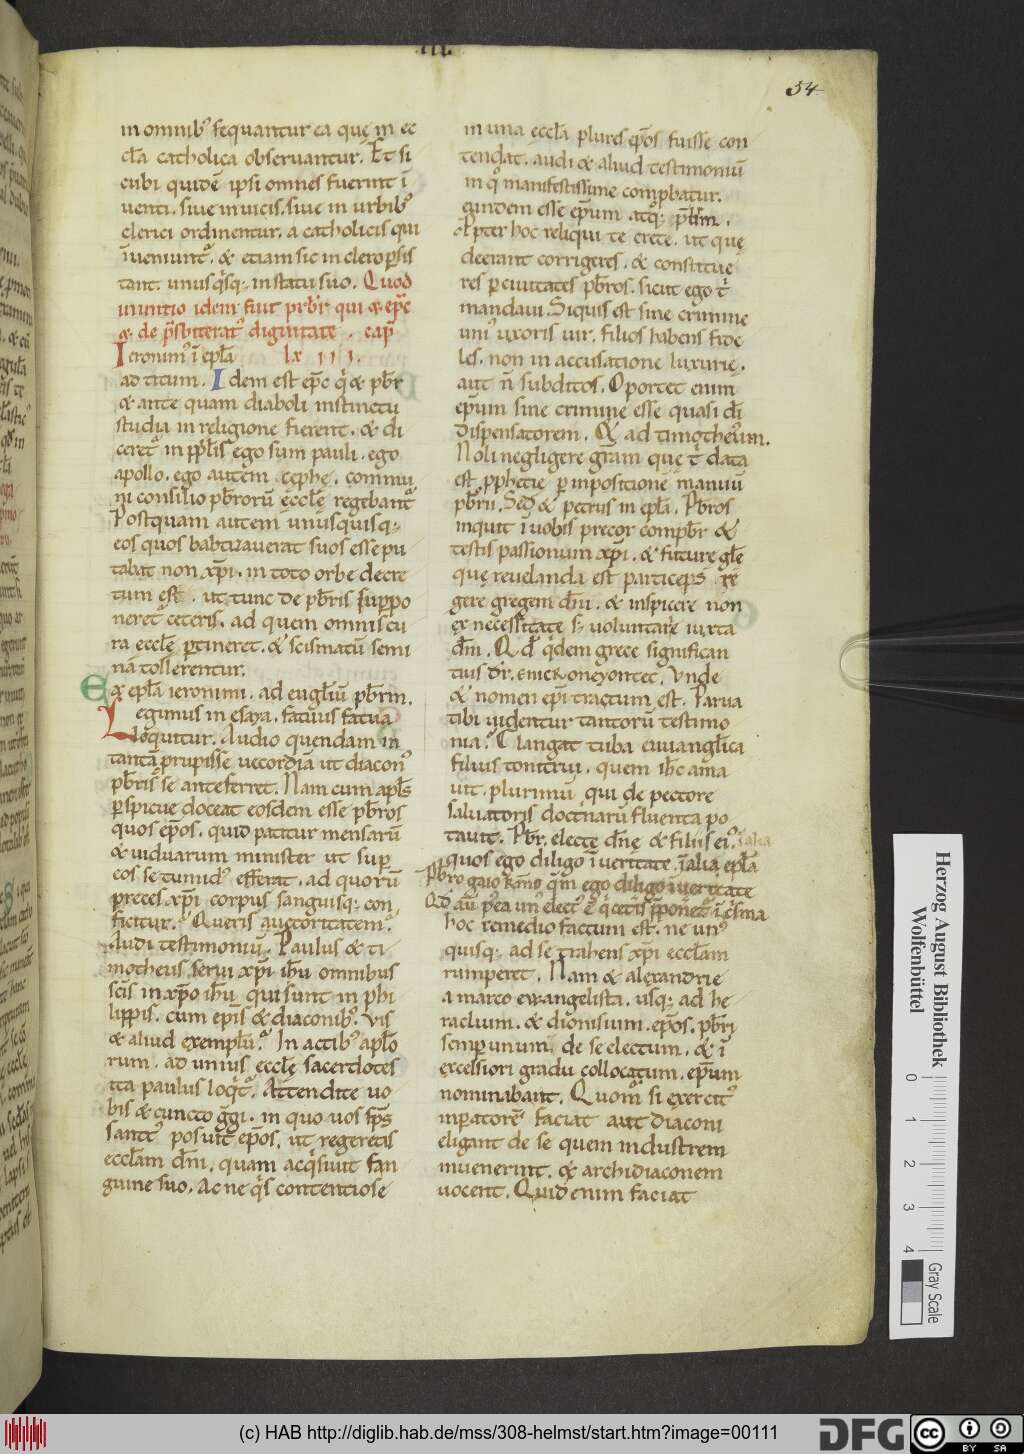 III.
54
in omnib; sequantur ea quę in ec
cl̄a catholica observantur. Et si
cubi quidē ipsi omnes fuerint ī
venti. sive in vicis. sive in urbib;
clerici ordinentur. a catholicis qui
īveniunt᷑. & etiam sic in clero p̄sis
tant. unusq̇sq; in statu suo. Quod
idem fuit pr̄br qui & ep̄c
& de p̄sbiterat᷒ dignitate. cap̄
Ieronim᷒ ī epl̄a lx III.
ad titum. Idem est ep̄c q̇ & pb̄r
& ante quam diaboli instinctu
studia in religione fierent. & di
ceret᷑ in pp̄lis ego sum pauli. ego
apollo. ego autem cephę. commu
ni consilio pb̄rorū ęcclę̄ regebant᷑
Postquam autem unusquisq;
eos quos babtizaverat suos esse pu
tabat non xp̄i. in toto orbe decre
tum est. ut tunc de pb̄ris suppo
neret᷑ ceteris. ad quem omnis cu
ra ecclę̄ ptineret. & scismatū semi
nā tollerentur.
Ex epl̄a ieronimi. ad eugl̄iū pb̄rm.
Legimus in esaya. fatuus fatua
loquitur. Audio quendam in
tantā prupisse vecordiā ut diacon᷒
pb̄ris se anteferret. Nam cum apl̄s
pspicue doceat eosdem esse pb̄ros
quos ep̄os. quid patitur mensarū
& viduarum minister ut sup
eos se tumid᷒ efferat. ad quorū
preces xp̄i corpus sanguisq; con
ficitur. Queris auctoritatem.
Audi testimoniū. Paulus & ti
motheus servi xp̄i ih̄u omnibus
sc̄is in xp̄o ih̄u qui sunt in phi
lippis. cum epīs & diaconib;. Vis
& aliud exemplū. In actib; apl̄o
rum. ad unius ecclę̄ sacerdotes
ita paulus loq̇t᷑. Attendite vo
bis & cuncto g̊gi. in quo vos sp̄s
sanct᷒ posuit ep̄os. ut regeretis
eccl̄am dn̄i. quam acq̇sivit san
guine suo. Ac ne q̇s contentiose
in una ęccl̄a plures ep̄os fuisse con
tendat. audi & aliud testimoniū
in q̊ manifestissime compbatur.
eundem esse ep̄um atq; pb̄rm.
Ppter hoc reliqui te cretę. ut quę
deerant corrigeres. & constitue
res p civitates pb̄ros. sicut ego t̄
mandavi. Siquis est sine crimine
uni᷒ uxoris vir. filios habens fide
les. non in accusatione luxurię.
aut n̄ subditos. Oportet enim
ep̄um sine crimine esse quasi di
dispensatorem. & ad timotheum.
Noli negligere grā̄m que t̄ data
est pphetię p inpositione manuū
pb̄rii. Sed & petrus in epl̄a. Pb̄ros
inquit ī vobis precor compb̄r &
testis passionum xp̄i. & future gl̄ę
quę revelanda est particeps re
gere gregem dn̄i. & inspicere non
ex necessitate s; voluntarie iuxta
dm̄. Qd̄ q̇dem grece significan
tius dr̄. Unde
& nomen epī tractum est. Parva
tibi videntur tantorū testimo
nia. Clangat tuba euuanglica
filius tonitrui. quem ih̄c ama
vit. plurimū qui de pectore
salvatoris doctnarū fluenta po
tavit. Pb̄r. electę dn̄ę & filiis ei᷒.
quos ego diligo ī veritate. īalia epl̄a
Pb̄r gaio q̄m ego diligo ī veritate
Qd̄ aū p᷒ea un᷒ elect᷒ ē
hoc remedio factum est. ne un᷒
quisq; ad se trahens xp̄i eccl̄am
rumperet. Nam & alexandrię
a marco ewangelista. usq; ad he
raclium. & dionisium. ep̄os. pb̄ri
semp unum. de se electum. & ī
excelsiori gradu collocatum. ep̄um
nominabant. Quom̊ si exercit᷒
inpatorē faciat aut diaconi
eligant de se quem industrem
invenerint. & archidiaconem
vocent. Quid enim faciat
Herzog August Bibliothek
Wolfenbüttel
0 1 2 3 4
Gray Scale
(c) HAB http://diglib.hab.de/mss/308-helmst/start.htm?image=00111
DFG
cc BY SA